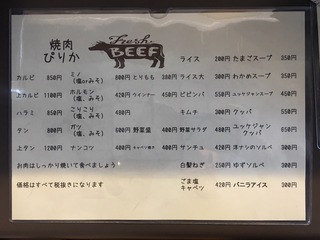 焼肉
ぴりか
Fresh
BEEF
カルビ 850円
上カルビ 1100円
ハラミ 850円
タン 800円
上タン 1200円
ミノ
(塩orみそ) 800円
ホルモン
(塩orみそ) 420円
こりこり
(塩orみそ) 480円
ガツ
(塩orみそ) 600円
ナンコツ 400円
とりもも 380円
ウインナー
野菜盛
キャベツ
ライス 200円
ライス大
ビビンバ
キムチ 300円
野菜サラダ
サンチュ 420円
白髪ねぎ 250円
ごま塩
キャベツ 420円
たまごスープ 350円
わかめスープ 350円
ユッケジャンスープ
クッパ 550円
ユッケジャン
クッパ 650円
洋ナシのソルベ 300円
ゆずソルベ 300円
バニラアイス 300円
お肉はしっかり焼いて食べましょう
価格はすべて税抜きになります